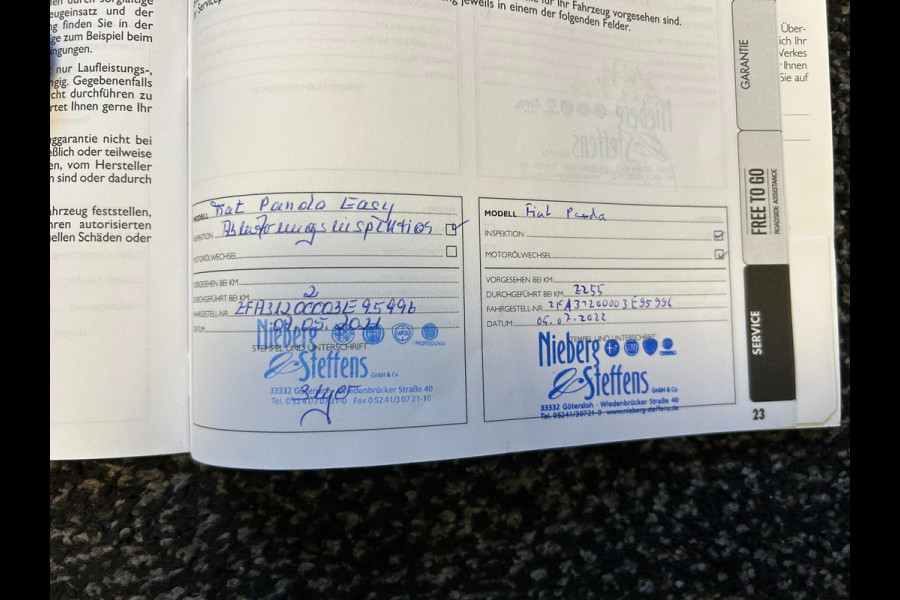 eugeinsatz und der
g finden Sie in der
ge zum Beispiel beim
ngungen.
nur Laufleistungs-,
gig. Gegebenenfalls
cht durchführen zu
rtet Ihnen gerne Ihr
ggarantie nicht bei
eßlich oder teilweise
en, vom Hersteller
n sind oder dadurch
ahrzeug feststellen,
hren autorisierten
uellen Schäden oder
für Ihr Fahrzeug vorgesehen sind.
jeweils in einem der folgenden Felder.
MODELL Fiat Panda Easy
INSPEKTION Ablieferungsinspektion
MOTORÖLWECHSEL
VORGESEHEN BEI KM
DURCHGEFÜHRT BEI KM 2
FAHRGESTELL-NR. ZFA31200003E95996
DATUM 07.05.2021
STEMPEL UND UNTERSCHRIFT
Nieberg
PROFESSIONAL
& Steffens GmbH & Co.
33332 Gütersloh · Wiedenbrücker Straße 40
Tel. 05241/30721-0 Fax 05241/30721-10
MODELL Fiat Panda
INSPEKTION
MOTORÖLWECHSEL
VORGESEHEN BEI KM
DURCHGEFÜHRT BEI KM 2255
FAHRGESTELL-NR. ZFA31200003E95996
DATUM 05.07.2022
STEMPEL UND UNTERSCHRIFT
Nieberg
& Steffens GmbH & Co.
33332 Gütersloh · Wiedenbrücker Straße 40
Tel. 05241/30721-0 · www.nieberg-steffens.de
GARANTIE
FREE TO GO
ROADSIDE ASSISTANCE
SERVICE
23
Über-
ich Ihr
Werkes
Ihnen
Sie auf